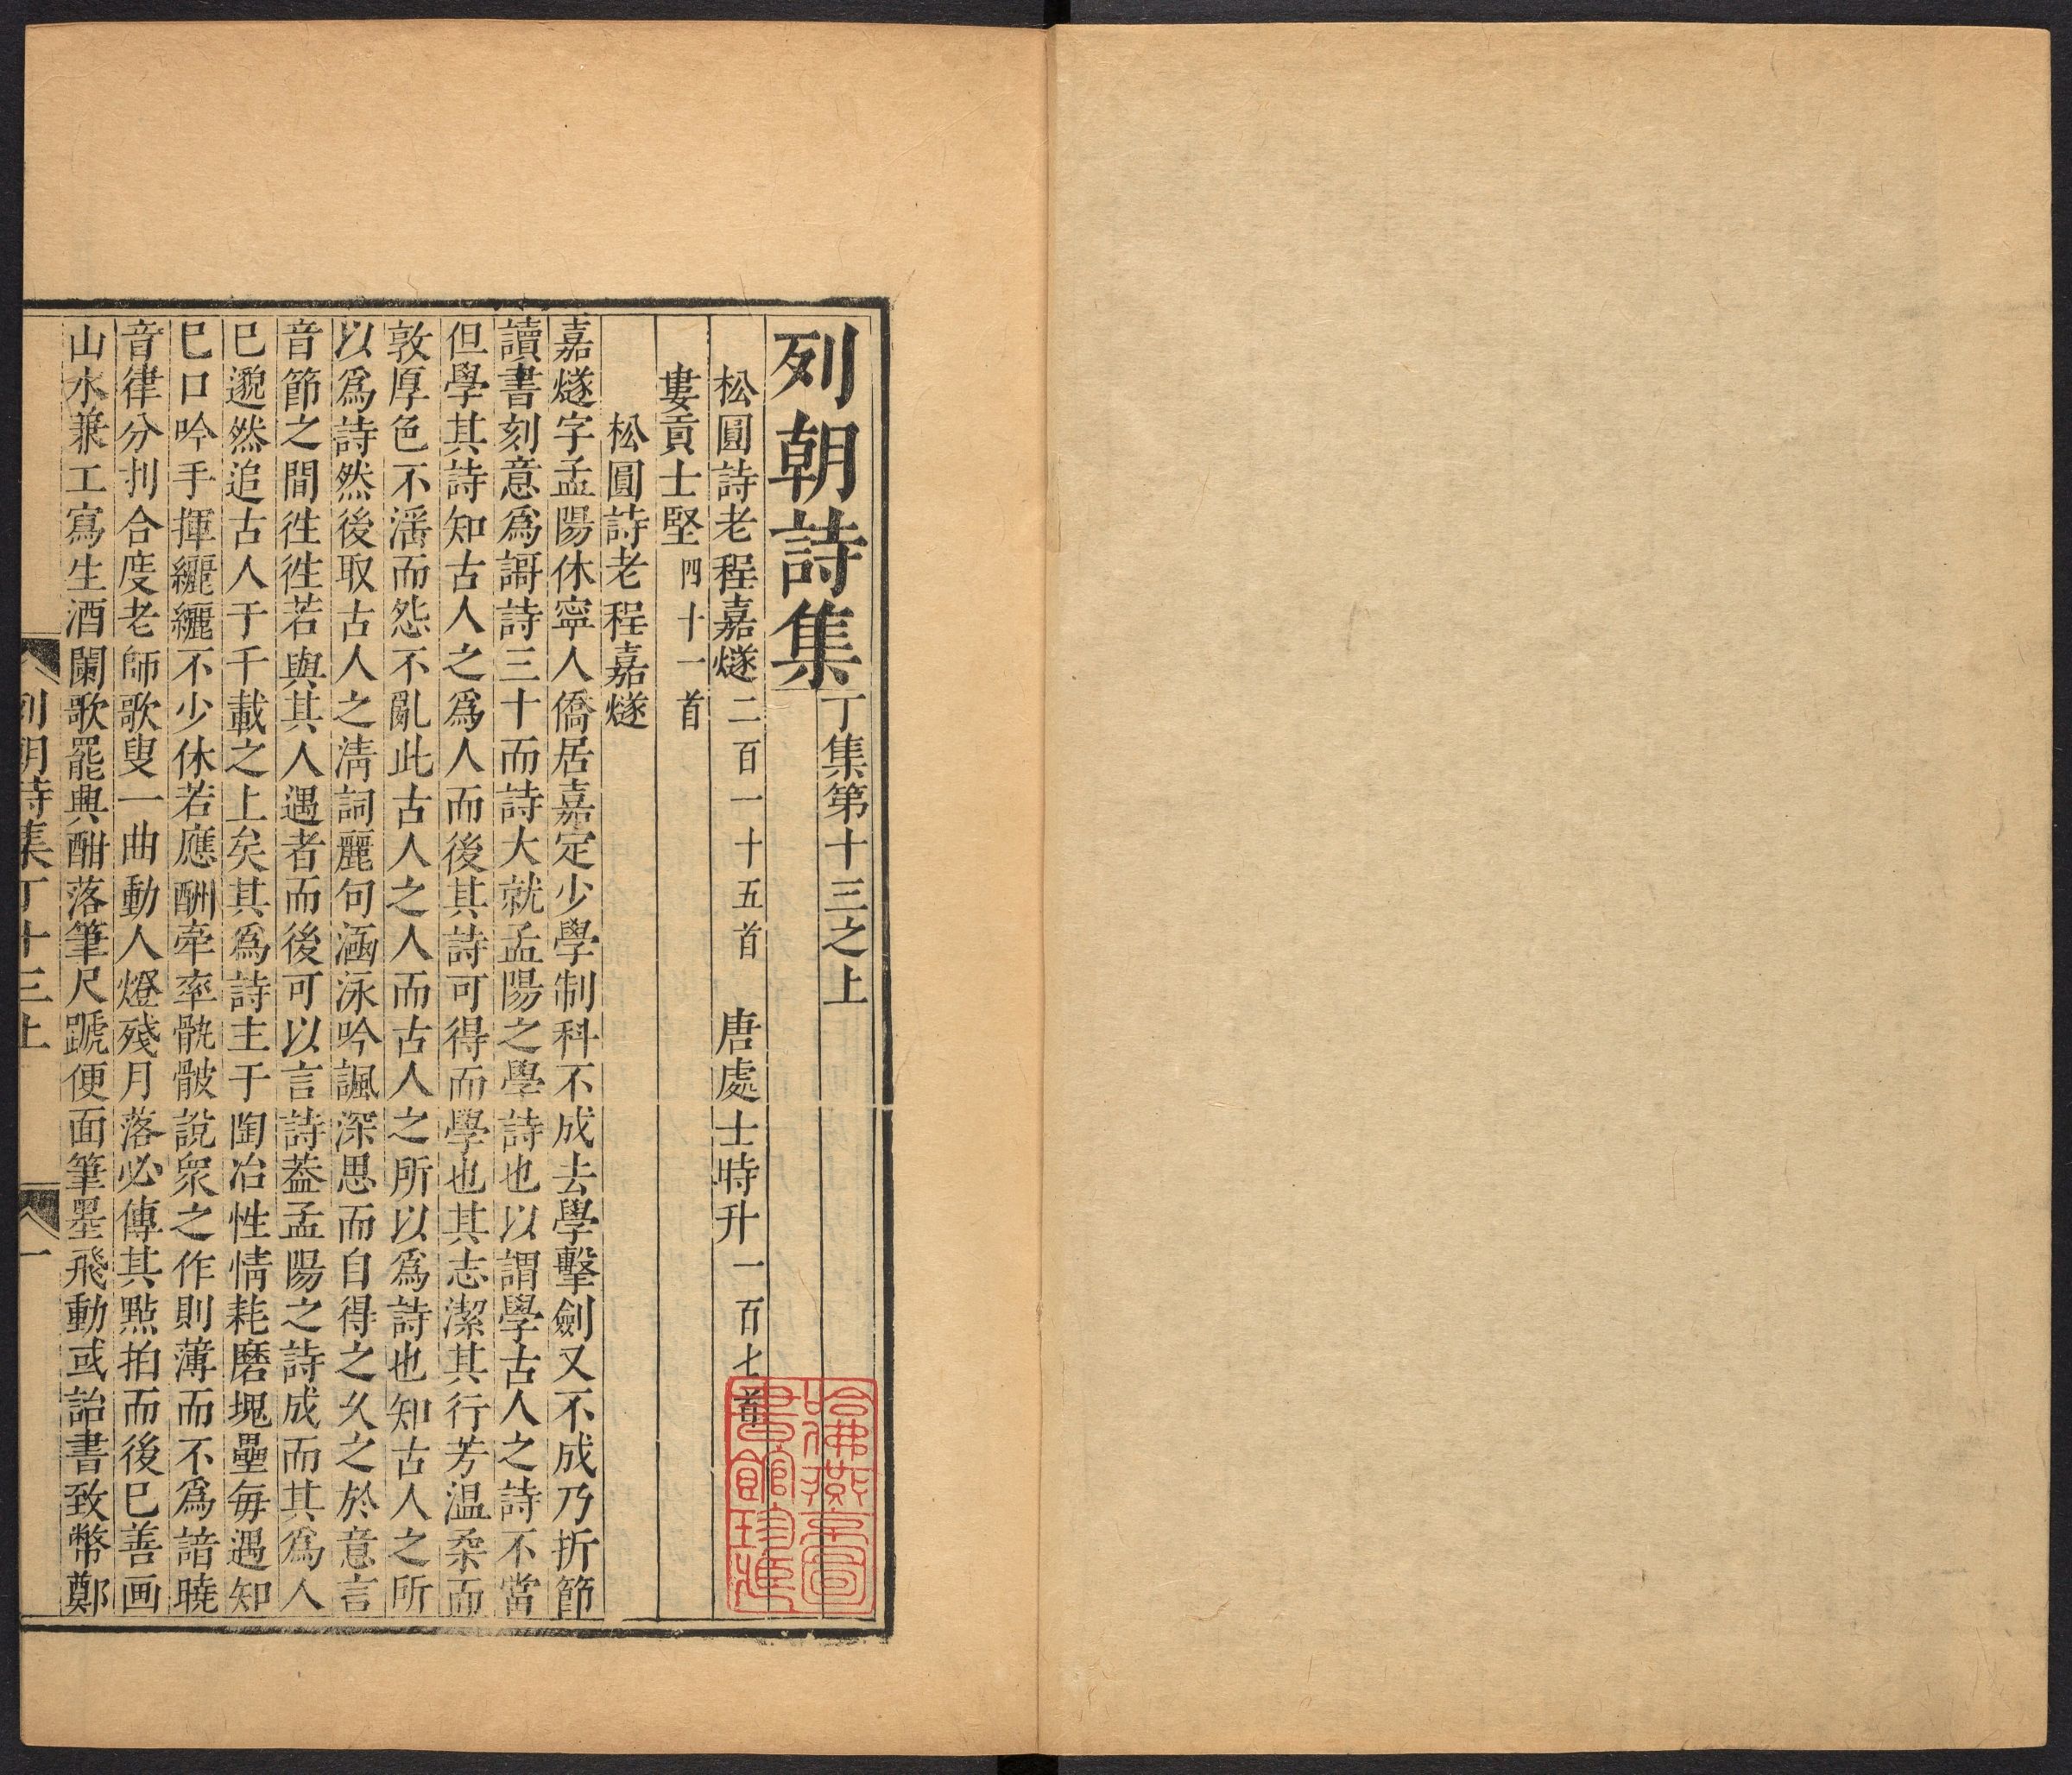 列朝詩集丁集第十三之上
松圓詩老程嘉燧二百一十五首 唐處士時升一百七首
婁貢士堅四十一首
松圓詩老程嘉燧
嘉燧字孟陽休寧人僑居嘉定少學制科不成去學擊劍又不成乃折節
讀書刻意爲謌詩三十而詩大就孟陽之學詩也以謂學古人之詩不當
但學其詩知古人之爲人而後其詩可得而學也其志潔其行芳温柔而
敦厚色不滛而怨不亂此古人之人而古人之所以爲詩也知古人之所
以爲詩然後取古人之清詞麗句涵泳吟諷深思而自得之久之於意言
音節之間徃徃若與其人遇者而後可以言詩葢孟陽之詩成而其爲人
巳邈然追古人于千載之上矣其爲詩主于陶冶性情耗磨塊壘每遇知
巳口吟手揮纚纚不少休若應酬牽率骫骳說衆之作則薄而不爲諳曉
音律分刌合度老師歌叟一曲動人燈殘月落必傳其點拍而後巳善画
山水兼工寫生酒闌歌罷興酣落筆尺蹏便面筆墨飛動或詒書致幣鄭
列朝詩集丁十三上 一
哈佛燕京圖
書館珍藏